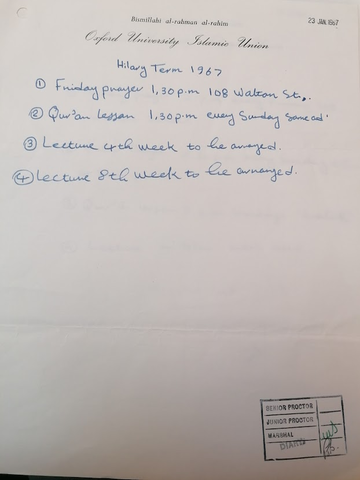 Bismillahi al-rahman al-rahim
23 JAN 1967
Oxford University Islamic Union
Hilary Term 1967
① Friday prayer 1,30 p.m 108 Walton St,.
② Qur'an Lesson 1,30 p.m every Sunday same ad.
③ Lecture 4th week to be arranged.
④ Lecture 8th week to be arranged.
SENIOR PROCTOR
JUNIOR PROCTOR
MARSHAL
DIARG